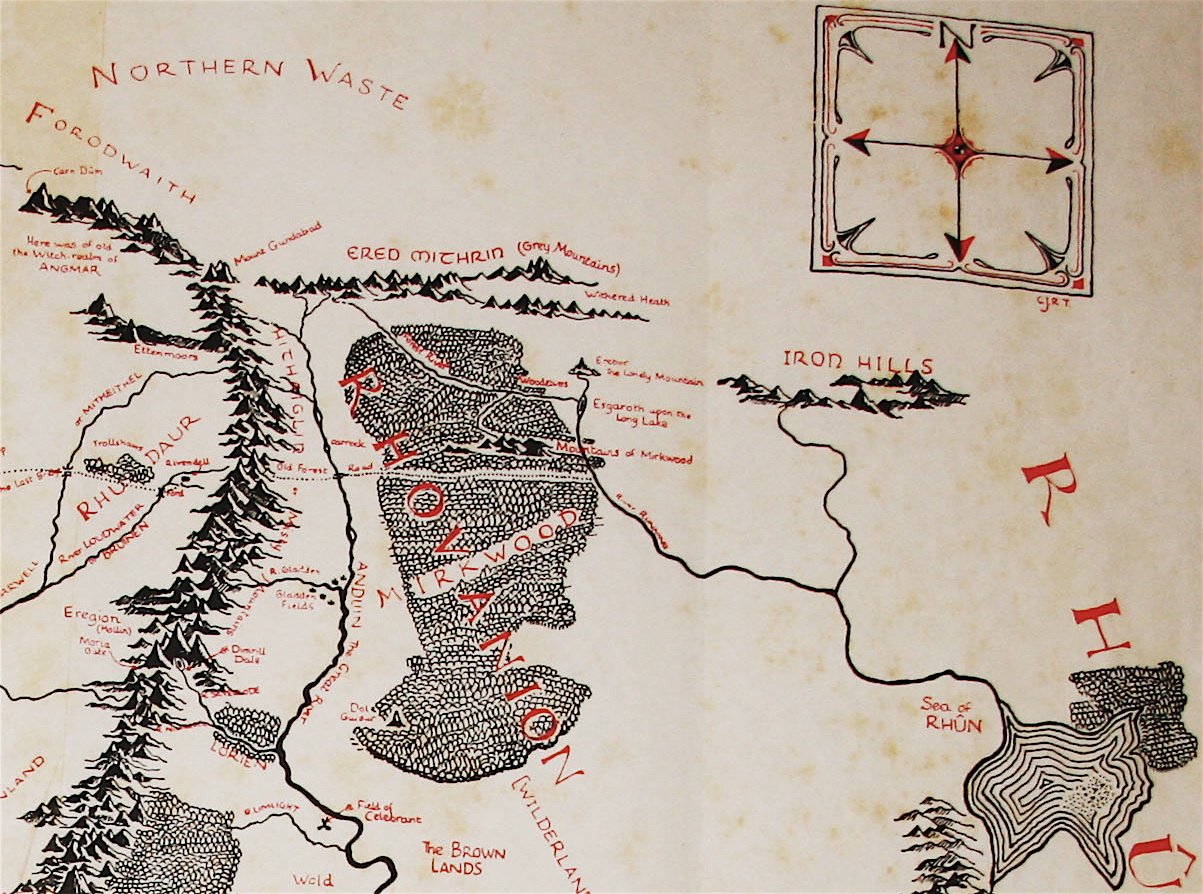 NORTHERN WASTE
FORODWAITH
N
Carn Dûm
Here was of old
the Witch-realm of
ANGMAR
Mount Gundabad
ERED MITHRIN (Grey Mountains)
Withered Heath
C.J.R.T.
Ettenmoors
HITHAEGLIR
or MITHEITHEL
Forest River
Woodelves
Erebor
the Lonely Mountain
IRON HILLS
Esgaroth upon the
Long Lake
Carrock
Mountains of Mirkwood
Trollshaws
Rivendell
Old Forest Road
Ford
RHUDAUR
River LOUDWATER
or BRUINEN
River Running
RHOVANION
(WILDERLAN
MIRKWOOD
Misty
Mountains
R. Gladden
Gladden
Fields
ANDUIN The Great River
Eregion
(Hollin)
Moria
Gate
Dimrill
Dale
Dol
Guldur
LÓRIEN
R. LIMLIGHT
Field of
Celebrant
The BROWN
LANDS
Wold
Sea of
RHÛN
RHÛ